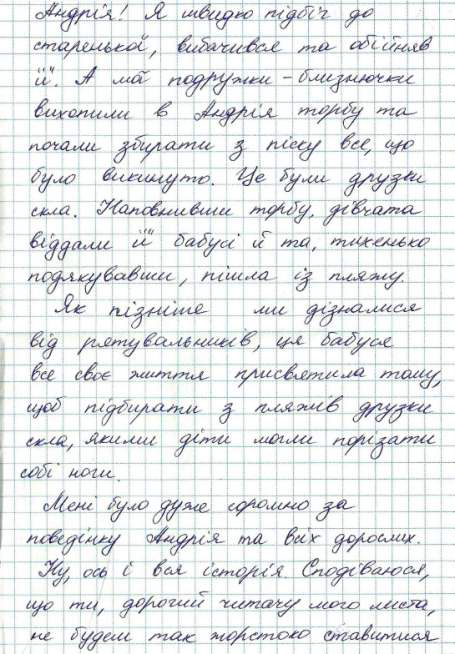 Андрія! Я швидко підбіг до
старенької, вибачився та обійняв
її. А мої подружки - близнючки
вихопили в Андрія торбу та
почали збирати з піску все, що
було викинуто. Це були друзки
скла. Наповнивши торбу, дівчата
віддали її бабусі й та, тихенько
подякувавши, пішла із пляжу.
Як пізніше ми дізналися
від рятувальників, ця бабуся
все своє життя присвятила тому,
щоб підбирати з пляжів друзки
скла, якими діти могли порізати
собі ноги.
Мені було дуже соромно за
поведінку Андрія та всіх дорослих.
Ну, ось і вся історія. Сподіваюся,
що ти, дорогий читачу мого листа,
не будеш так жорстоко ставитися